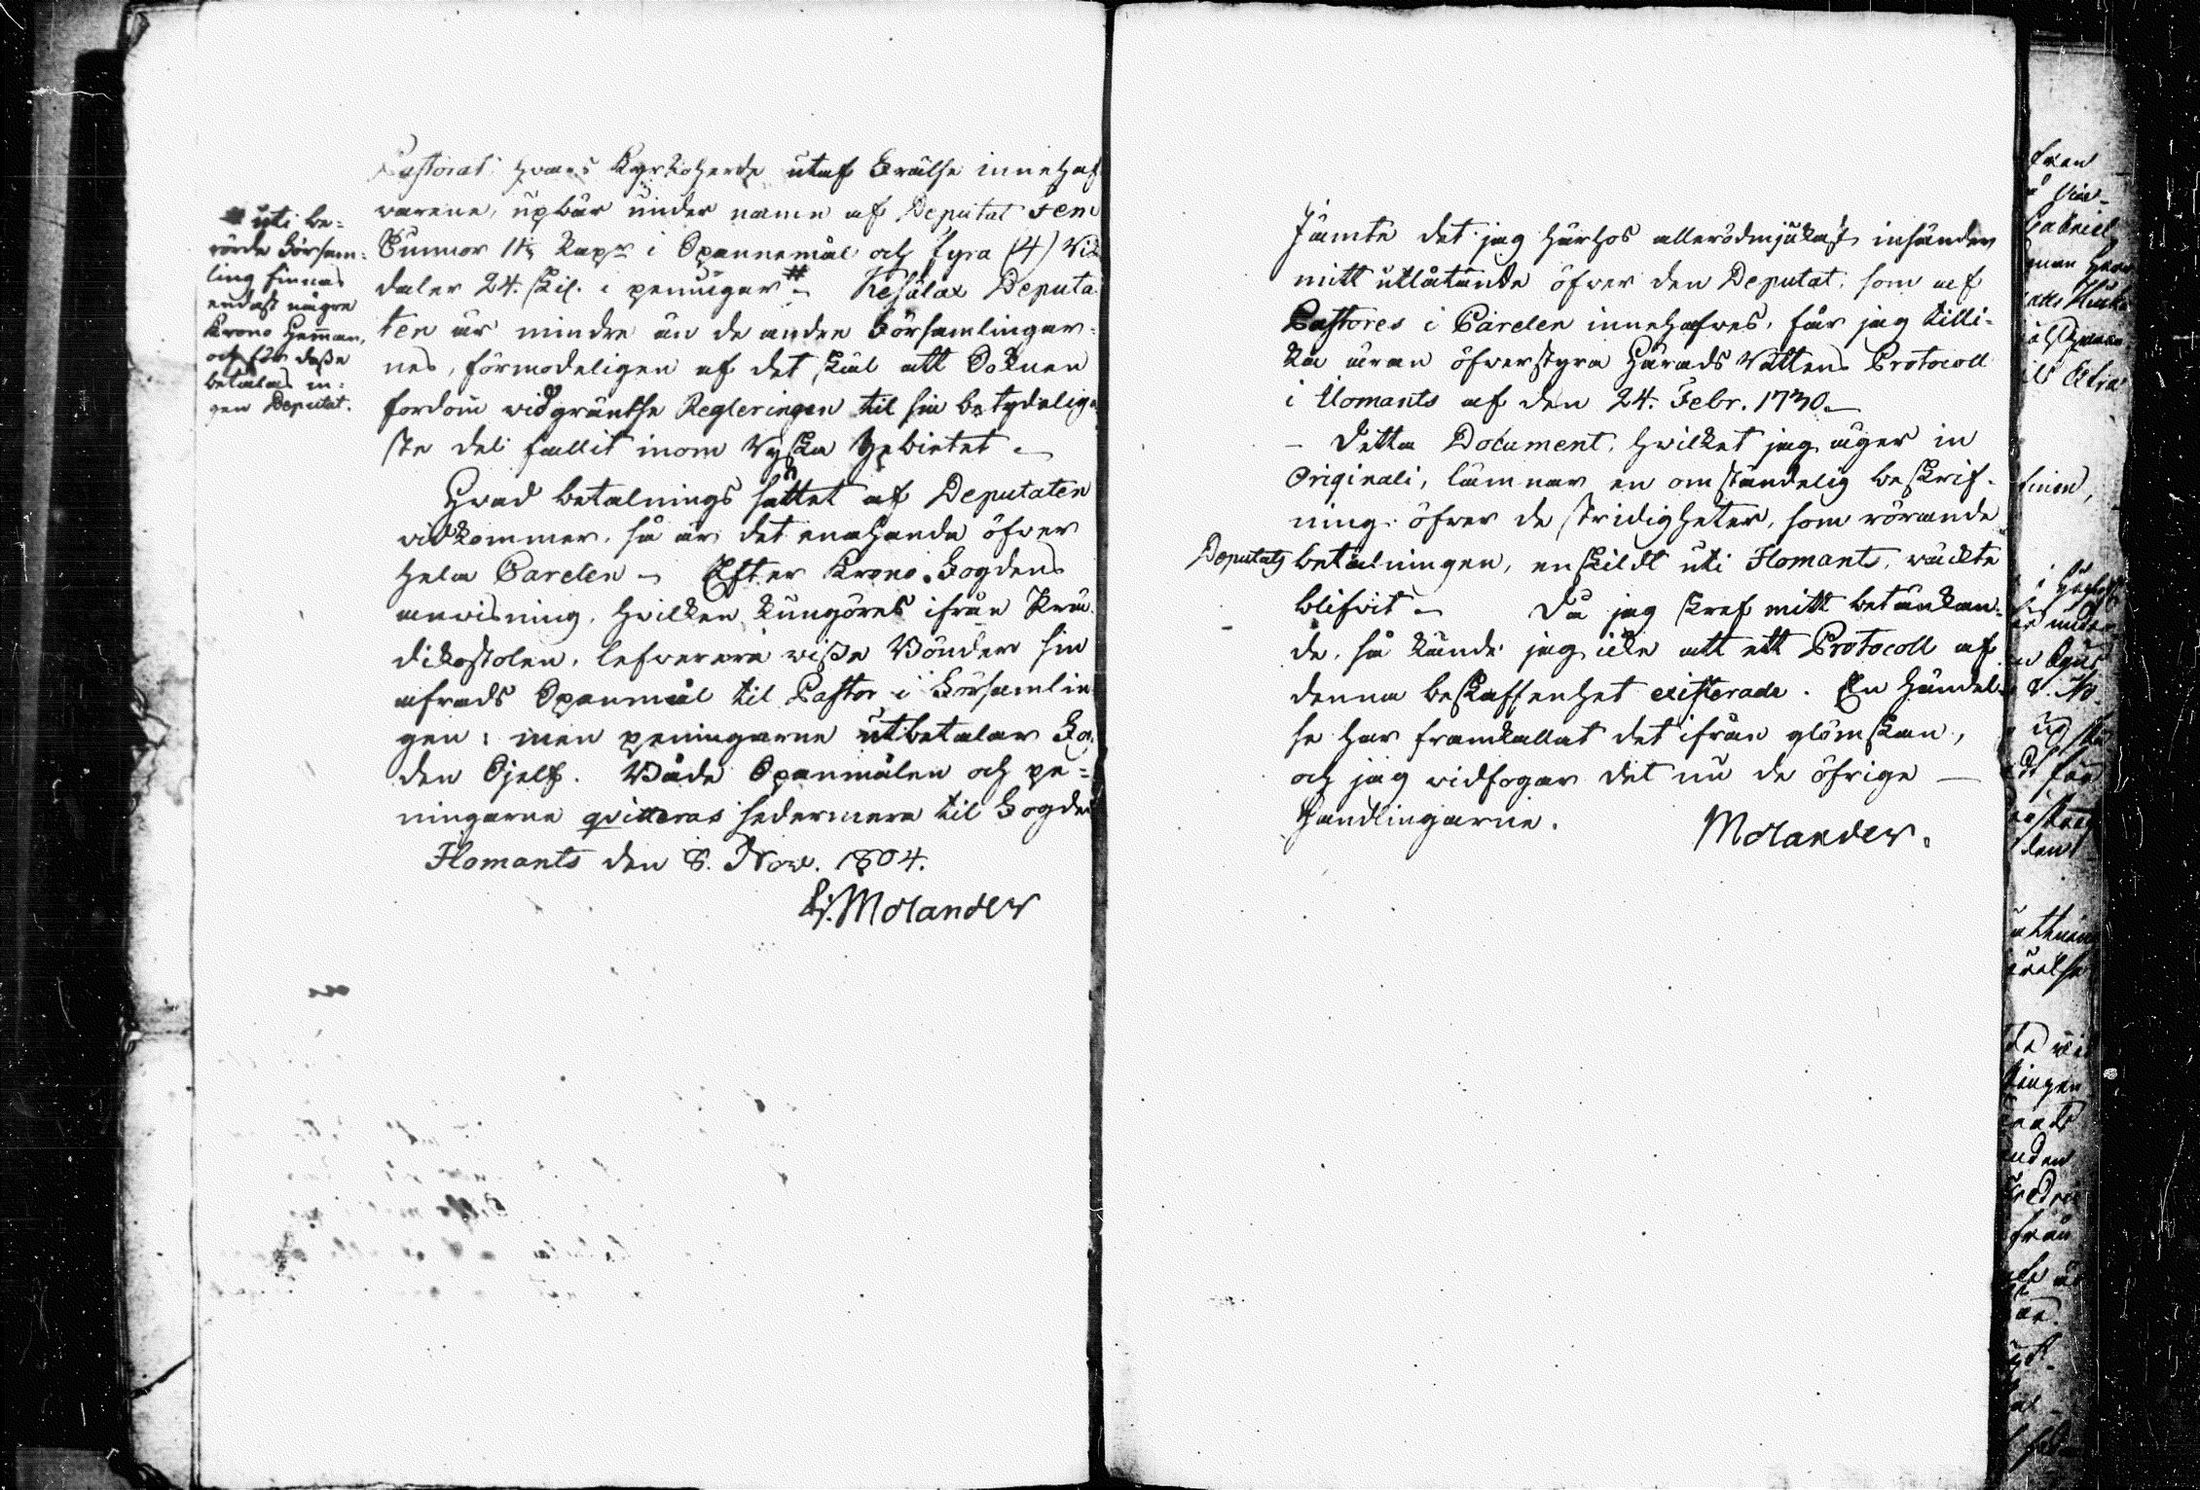 Pastorat, hvars Kyrkoherde utaf Frälse innehaf
warene, upbär under namn af Deputat Fem
Tunnor 11½ Kapr i Spannemål och fyra (4) Rik
daler 24. skil. i penningar # Kesälax Deputa
ten är mindre än de andra Församlingar-
nes, förmodeligen af det skäl att Soknen
fordom wid gräntse Regleringen til sin betydelig
ste del fallit inom Ryska Gebietet.
# uti be-
rörde Försam-
ling finnas
endast några
Krono Hemman,
och för dessa
betalas in-
gen Deputat.
Hwad betalnings sättet af Deputaten
widkommer, så är det enahanda öfwer
hela Carelen. Efter Krono Fogdens
anwisning, hwilken kungöres ifrån Prä
dikostolen, lefwerera wissa Bönder sin
afrads Spanmål til Pastor i Församlin
gen; men penningarne utbetalar Fog
den Sjelf. Både Spanmålen och pe-
ningarne qvitteras sedermera til Fogden
Ilomants den 8. Nov. 1804.
Molander
Jämte det jag härhos allerödmjukast insänder
mitt utlåtande öfwer den Deputat, som af
Pastores i Carelen innehafwes, får jag tilli-
ka äran öfwerstyra Härads Rättens Protocoll
i Ilomants af den 24. Febr. 1730.
- Detta Document, hwilket jag äger in
Originali, lämnar en omständelig beskrif-
ning öfwer de stridigheter, som rörande
Deputats betalningen, enskildt uti Ilomants, wäckte
blifwit. Då jag skref mitt betänkan-
de, så kände jag icke att ett Protocoll af
denna beskaffenhet existerade. En händel-
se har framkallat det ifrån glömskan,
och jag widfogar det nu de öfrige
Handlingarne.
Molander.